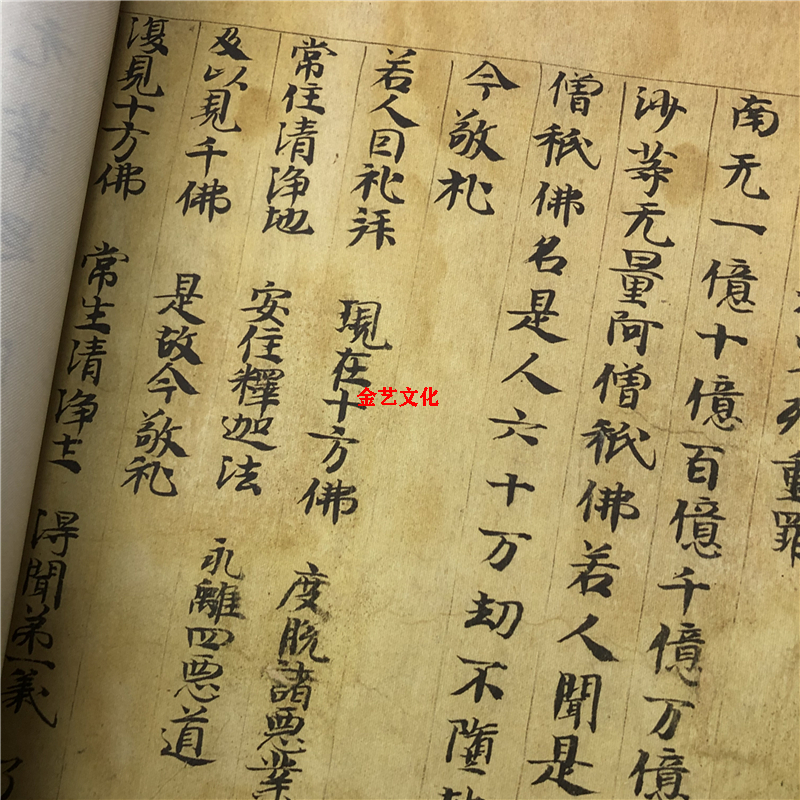 重罪
南无一億十億百億千億万億
沙等无量阿僧祇佛若人聞是
僧祇佛名是人六十万劫不墮
今敬礼
若人因礼拜 現在十方佛 度脱諸悪業
常住清浄地 安住釋迦法 永離四悪道
及以見千佛 是故今敬礼
復見十方佛 常生清浄土 得聞弟一義
金艺文化